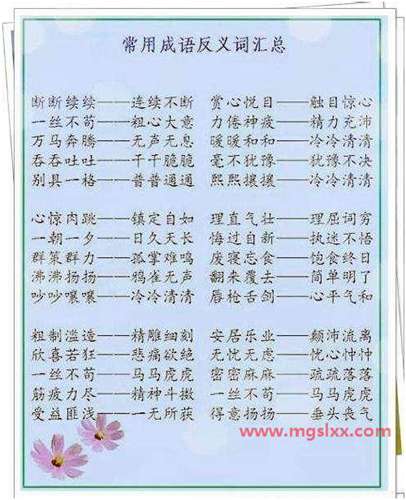 常用成语反义词汇总
断断续续——连续不断 赏心悦目——触目惊心
一丝不苟——粗心大意 力倦神疲——精力充沛
万马奔腾——无声无息 暖暖和和——冷冷清清
吞吞吐吐——干干脆脆 毫不犹豫——犹豫不决
别具一格——普普通通 熙熙攘攘——冷冷清清
心惊肉跳——镇定自如 理直气壮——理屈词穷
一朝一夕——日久天长 悔过自新——执迷不悟
群策群力——孤掌难鸣 废寝忘食——饱食终日
沸沸扬扬——鸦雀无声 翻来覆去——简单明了
吵吵嚷嚷——冷冷清清 唇枪舌剑——心平气和
粗制滥造——精雕细刻 安居乐业——颠沛流离
欣喜若狂——悲痛欲绝 无忧无虑——忧心忡忡
一丝不苟——马马虎虎 密密麻麻——疏疏落落
筋疲力尽——精神斗擞 一丝不苟——马马虎虎
受益匪浅——一无所获 得意扬扬——垂头丧气
www.mgslxx.com